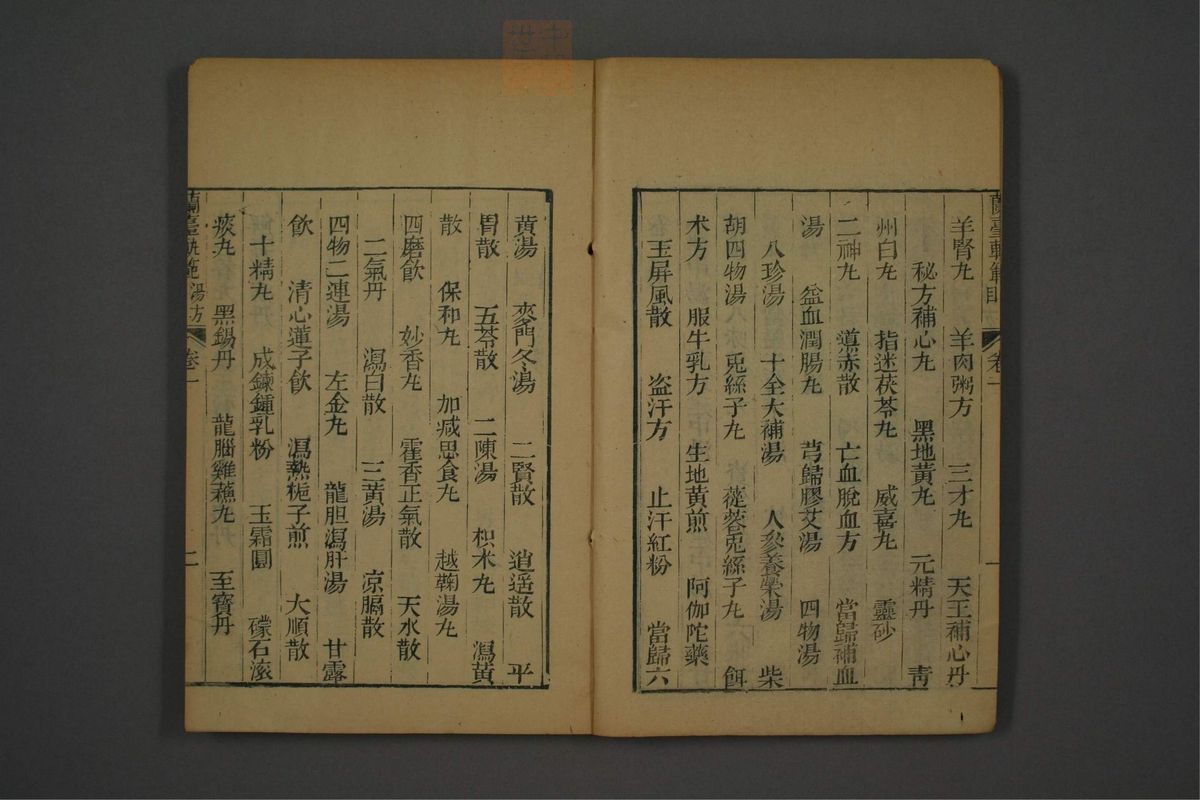 羊腎丸　羊肉粥方　三才丸　天王補心丹
秘方補心丸　黑地黃丸　元精丹　青
州白丸　指迷茯苓丸　威喜丸　靈砂
二神丸　導赤散　亡血脫血方　當歸補血
湯　益血潤腸丸　芎歸膠艾湯　四物湯
八珍湯　十全大補湯　人參養榮湯　柴
胡四物湯　兎絲子丸　蓯蓉兎絲子丸　餌
术方　服牛乳方　生地黃煎　阿伽陀藥
玉屏風散　盗汗方　止汗紅粉　當歸六
黃湯　麥門冬湯　二賢散　逍遥散　平
胃散　五苓散　二陳湯　枳术丸　瀉黃
散　保和丸　加减思食丸　越鞠湯丸
四磨飲　妙香丸　霍香正氣散　天水散
二氣丹　瀉白散　三黃湯　凉膈散
四物二連湯　左金丸　龍胆瀉肝湯　甘露
飲　清心蓮子飲　瀉熱梔子煎　大順散
十精丸　成鍊鍾乳粉　玉霜圓　礞石滚
痰丸　黑錫丹　龍腦雞蘇丸　至寶丹
蘭臺軌範　湯方　卷一　二